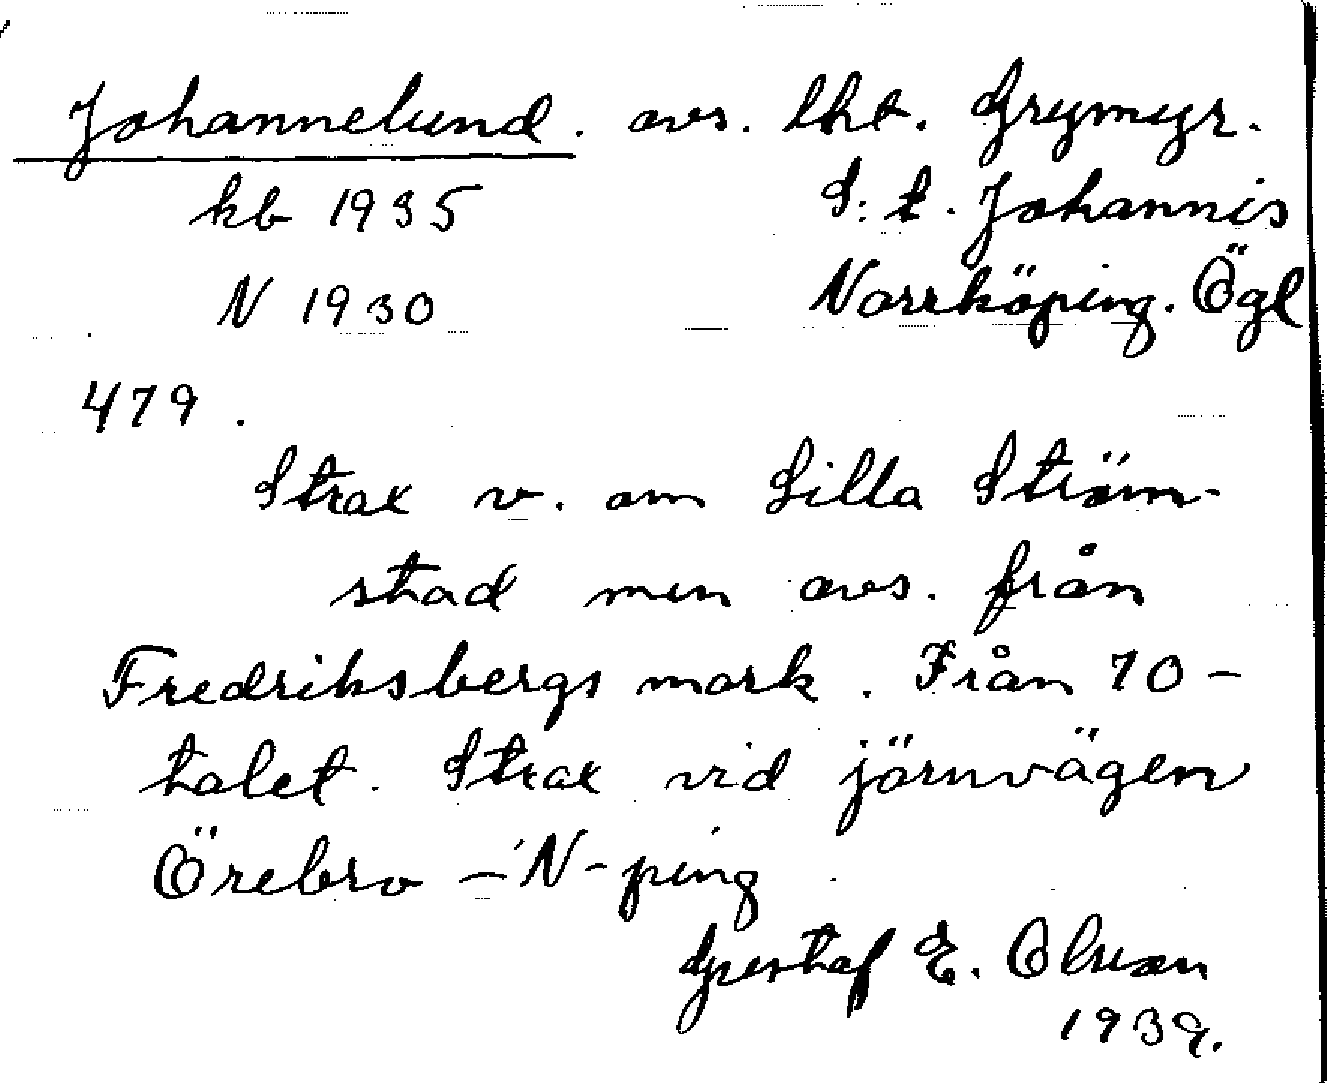 Johannelund. avs. lht. Grymyr.
kb 1935 S:t. Johannis
N 1930 Norrköping. Ögl
479.
Strax v. om Lilla Ström-
stad men avs. från
Fredriksbergs mark. Från 70-
talet. Strax vid järnvägen
Örebro - N-ping
Gustaf E. Olsson
1939.